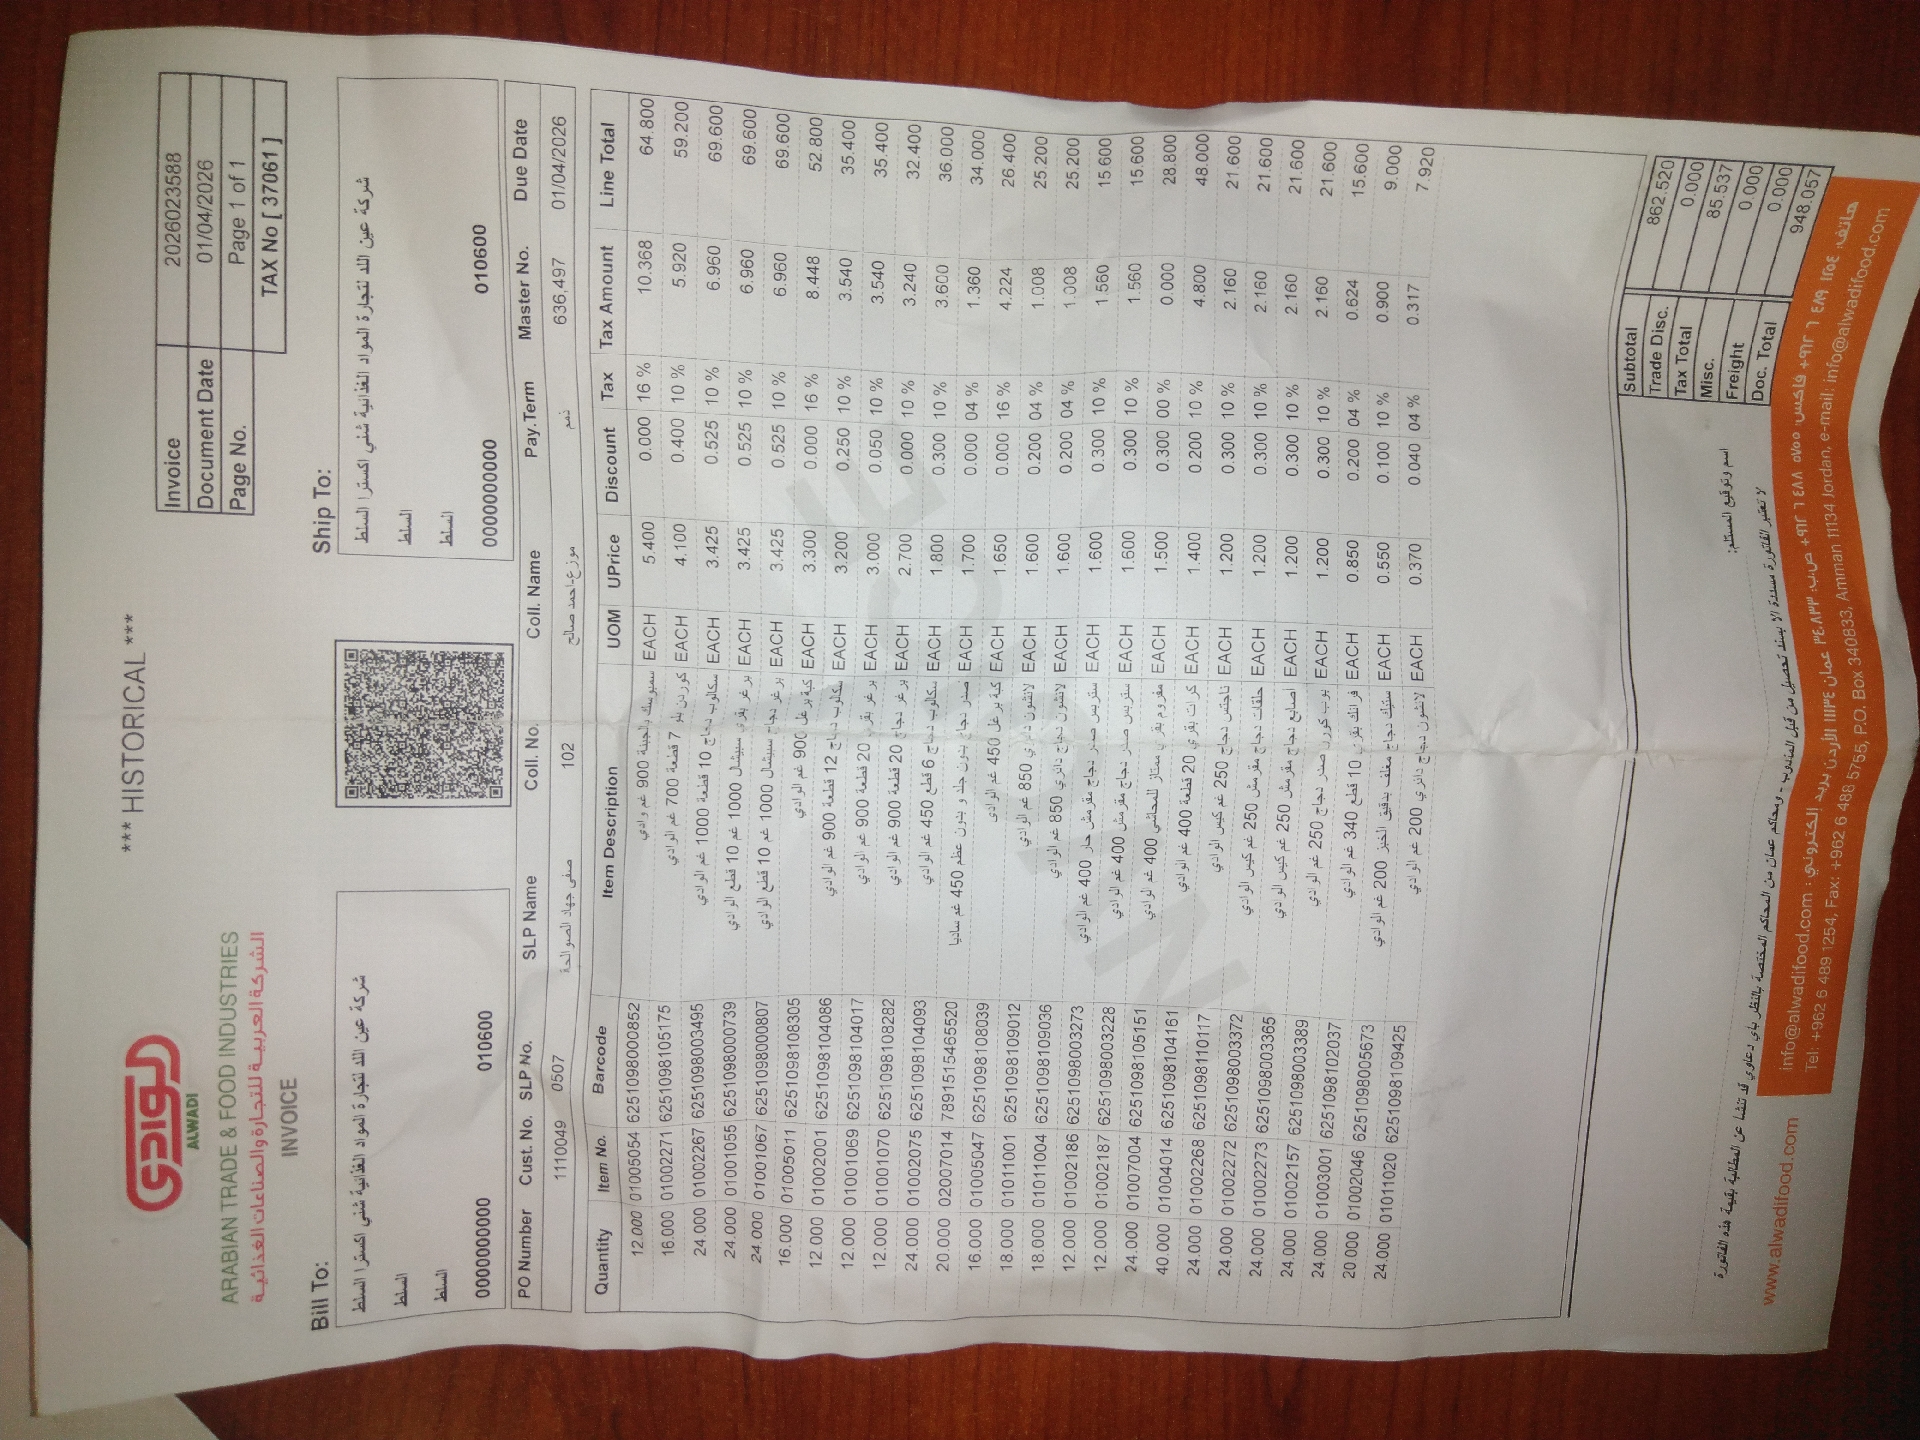 *** HISTORICAL ***
الوادي
ALWADI
ARABIAN TRADE & FOOD INDUSTRIES
الشركة العربية للتجارة والصناعات الغذائية
INVOICE
Invoice 2026023588
Document Date 01/04/2026
Page No. Page 1 of 1
TAX No [ 37061 ]
Bill To:
شركة عين الله لتجارة المواد الغذائية شني اكسترا السلط
السلط
السلط
0000000000 010600
Ship To:
شركة عين الله لتجارة المواد الغذائية شني اكسترا السلط
السلط
السلط
0000000000 010600
PO Number Cust. No. SLP No. SLP Name Coll. No. Coll. Name Pay.Term Master No. Due Date
1110049 0507 صفى جهاد الصوالحة 102 موزع-احمد صالح ذمم 636,497 01/04/2026
Quantity Item No. Barcode Item Description UOM UPrice Discount Tax Tax Amount Line Total
12.000 01005054 6251098000852 سمبوسك بالجبنة 900 غم وادي EACH 5.400 0.000 16 % 10.368 64.800
16.000 01002271 6251098105175 كوردن بلو 7 قطعة 700 غم الوادي EACH 4.100 0.400 10 % 5.920 59.200
24.000 01002267 6251098003495 سكالوب دجاج 10 قطعة 1000 غم الوادي EACH 3.425 0.525 10 % 6.960 69.600
24.000 01001055 6251098000739 برغر بقري سبيشال 1000 غم 10 قطع الوادي EACH 3.425 0.525 10 % 6.960 69.600
24.000 01001067 6251098000807 برغر دجاج سبيشال 1000 غم 10 قطع الوادي EACH 3.425 0.525 10 % 6.960 69.600
16.000 01005011 6251098108305 كبة برغل 900 غم الوادي EACH 3.300 0.000 16 % 8.448 52.800
12.000 01002001 6251098104086 سكالوب دجاج 12 قطعة 900 غم الوادي EACH 3.200 0.250 10 % 3.540 35.400
12.000 01001069 6251098104017 برغر بقري 20 قطعة 900 غم الوادي EACH 3.000 0.050 10 % 3.540 35.400
12.000 01001070 6251098108282 برغر دجاج 20 قطعة 900 غم الوادي EACH 2.700 0.000 10 % 3.240 32.400
24.000 01002075 6251098104093 سكالوب دجاج 6 قطع 450 غم الوادي EACH 1.800 0.300 10 % 3.600 36.000
20.000 02007014 7891515465520 صدر دجاج بدون جلد و بدون عظم 450 غم ساديا EACH 1.700 0.000 04 % 1.360 34.000
16.000 01005047 6251098108039 كبة برغل 450 غم الوادي EACH 1.650 0.000 16 % 4.224 26.400
18.000 01011001 6251098109012 لانشون دائري 850 غم الوادي EACH 1.600 0.200 04 % 1.008 25.200
18.000 01011004 6251098109036 لانشون دجاج دائري 850 غم الوادي EACH 1.600 0.200 04 % 1.008 25.200
12.000 01002186 6251098003273 ستربس صدر دجاج مقرمش حار 400 غم الوادي EACH 1.600 0.300 10 % 1.560 15.600
12.000 01002187 6251098003228 ستربس صدر دجاج مقرمش 400 غم الوادي EACH 1.600 0.300 10 % 1.560 15.600
24.000 01007004 6251098105151 مفروم بقري ممتاز للمحاشي 400 غم الوادي EACH 1.500 0.300 00 % 0.000 28.800
40.000 01004014 6251098104161 كرات بقري 20 قطعة 400 غم الوادي EACH 1.400 0.200 10 % 4.800 48.000
24.000 01002268 6251098110117 ناجتس دجاج 250 غم كيس الوادي EACH 1.200 0.300 10 % 2.160 21.600
24.000 01002272 6251098003372 حلقات دجاج مقرمش 250 غم كيس الوادي EACH 1.200 0.300 10 % 2.160 21.600
24.000 01002273 6251098003365 اصابع دجاج مقرمش 250 غم كيس الوادي EACH 1.200 0.300 10 % 2.160 21.600
24.000 01002157 6251098003389 بوب كورن صدر دجاج 250 غم الوادي EACH 1.200 0.300 10 % 2.160 21.600
24.000 01003001 6251098102037 فرانك بقري 10 قطع 340 غم الوادي EACH 0.850 0.200 04 % 0.624 15.600
20.000 01002046 6251098005673 ستيك دجاج مغلف بدقيق الخبز 200 غم الوادي EACH 0.550 0.100 10 % 0.900 9.000
24.000 01011020 6251098109425 لانشون دجاج دائري 200 غم الوادي EACH 0.370 0.040 04 % 0.317 7.920
Subtotal 862.520
Trade Disc. 0.000
Tax Total 85.537
Misc. 0.000
Freight 0.000
Doc. Total 948.057
اسم وتوقيع المستلم:
لا تعتبر الفاتورة مسددة الا بسند تحصيل من قبل المندوب - ومحاكم عمان من المحاكم المختصة بالنظر باي دعاوي قد تنشا عن المطالبة بقيمة هذه الفاتورة
هاتف: ١٢٥٤ ٤٨٩ ٦ ٩٦٢+ فاكس: ٥٧٥٥ ٤٨٨ ٦ ٩٦٢+ ص.ب: ٣٤٠٨٣٣ عمان ١١١٣٤ الأردن بريد إلكتروني: info@alwadifood.com
www.alwadifood.com Tel: +962 6 489 1254, Fax: +962 6 488 5755, P.O. Box 340833, Amman 11134 Jordan, e-mail: info@alwadifood.com